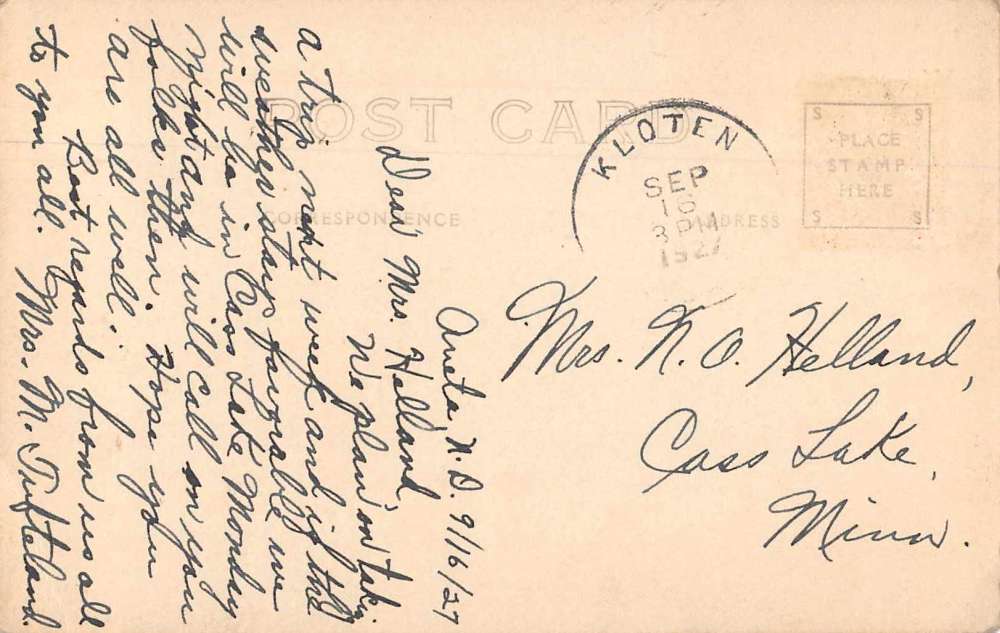 POST CARD
CORRESPONDENCE
ADDRESS
PLACE
STAMP
HERE
S S
S S
KLOTEN
SEP
16
3 PM
1927
Aneta, N.D. 9/16/27
Dear Mrs. Helland,
We plan on takin
a trip next week and if the
weather stays favorable we
will be in Cass Lake Monday
night and will call on you
folks then. Hope you
are all well.
Best regards from us all
to you all. Mrs. M. Tufteland.
Mrs. N. O. Helland,
Cass Lake,
Minn.